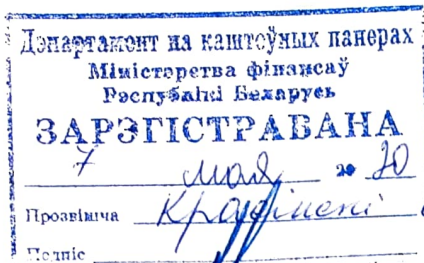 Дэпартамент па каштоўных паперах
Міністэрства фінансаў
Рэспублікі Беларусь
ЗАРЭГІСТРАВАНА
7 мая 20 20
Прозвішча
Подпіс